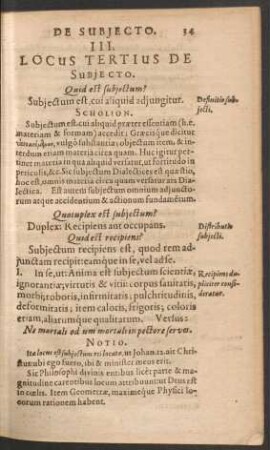 DE SUBJECTO. 34
III.
LOCUS TERTIUS DE
SUBJECTO.
Quid est subjectum?
Subjectum est, cui aliquid adjungitur.
Definitio subjecti.
SCHOLION.
Subjectum est, cui aliquid præter essentiam (h.e.
materiam & formam) accedit: Græcisque dicitur
vulgò substantia: objectum item, & in-
terdum etiam materia circa quam. Huc igitur perti-
net materia in qua aliquid versatur, ut fortitudo in
periculis, &c. Sic subjectum Dialectices est quastio,
hoc est, omnis materia circa quam versatur ars Diale-
ctica. Est autem subjectum omnium adjuncto-
rum atque accidentium & actionum fundamentum.
Quotuplex est subjectum?
Duplex: Recipiens aut occupans.
Distributio subjecti.
Quid est recipiens?
Subjectum recipiens est, quod rem ad-
junctam recipit: eamque in se, vel ad se.
I. In se, ut: Anima est subjectum scientiæ,
Recipiens dupliciter consideratur.
ignorantiæ, virtutis & vitii: corpus sanitatis,
morbi, roboris, infirmitatis: pulchritudinis,
deformitatis: item caloris, frigoris; coloris
etiam, aliarumque qualitatum. Versus:
Ne mortali odium mortali in pectore serves.
NOTIO.
Ita locus est subjectum rei locatæ, in Johan. 12. ait Chri-
stus: ubi ego fuero, ibi & minister meus erit.
Sic Philosophi divinis entibus licèt parte &
magnitudine carentibus locum attribuunt: ut Deus est
in cœlis. Item Geometræ, maximeque Physici lo-
corum rationem habent.